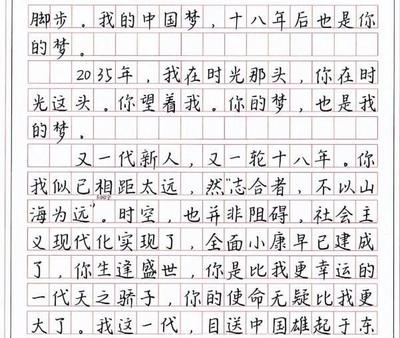 脚步。我的中国梦，十八年后也是你
的梦。
2035年，我在时光那头，你在时
光这头。你望着我。你的梦，也是我
的梦。
又一代新人，又一轮十八年。你
我似已相距太远，然“志合者，不以山
海为远”。时空，也并非阻碍，社会主
义现代化实现了，全面小康早已建成
了，你生逢盛世，你是比我更幸运的
一代天之骄子，你的使命无疑比我更
大了。我这一代，目送中国雄起于东